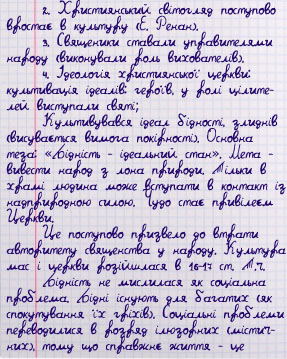 2. Християнський світогляд поступово
вростає в культуру (Е. Ренан).
3. Священики ставали управителями
народу (виконували роль вихователів).
4. Ідеологія християнської церкви:
культивація ідеалів: героїв, у ролі цілите-
лей виступали святі;
Культивувався ідеал бідності, злиднів
(висувається вимога покірності). Основна
теза: «Бідність - ідеальний стан». Мета -
вивести народ з лона природи. Тільки в
храмі людина може вступати в контакт із
надприродною силою. Чудо стає привілеєм
Церкви.
Це поступово призвело до втрати
авторитету священства у народу. Культура
мас і церкви розійшлася в 16-17 ст. Т.ч.
Бідність не мислилася як соціальна
проблема. Бідні існують для багатих (як
спокутування їх гріхів). Соціальні проблеми
переводилися в розряд ілюзорних (містич-
них), тому що справжнє життя - це